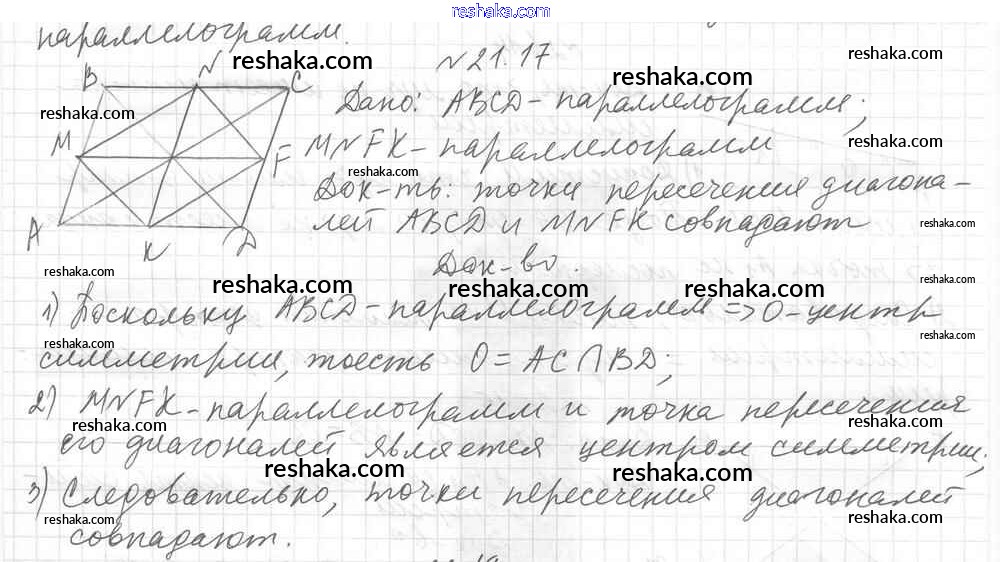 reshaka.com
параллелограмм.
№21.17
reshaka.com
reshaka.com
reshaka.com
B N C
reshaka.com
Дано: ABCD - параллелограмм;
M F
MNFK - параллелограмм
reshaka.com
reshaka.com
Док-ть: точки пересечения диагона-
A K D
лей ABCD и MNFK совпадают
reshaka.com
Док-во.
reshaka.com
reshaka.com
reshaka.com
reshaka.com
1) Поскольку ABCD - параллелограмм => O - центр
reshaka.com
симметрии, тоесть O = AC ∩ BD;
reshaka.com
2) MNFK - параллелограмм и точка пересечения
reshaka.com
reshaka.com
его диагоналей является центром симметрии;
reshaka.com
reshaka.com
3) Следовательно, точки пересечения диагоналей
reshaka.com
reshaka.com
совпадают.